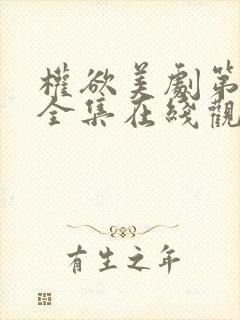 權欲美劇第
全集在綫觀
有生之年